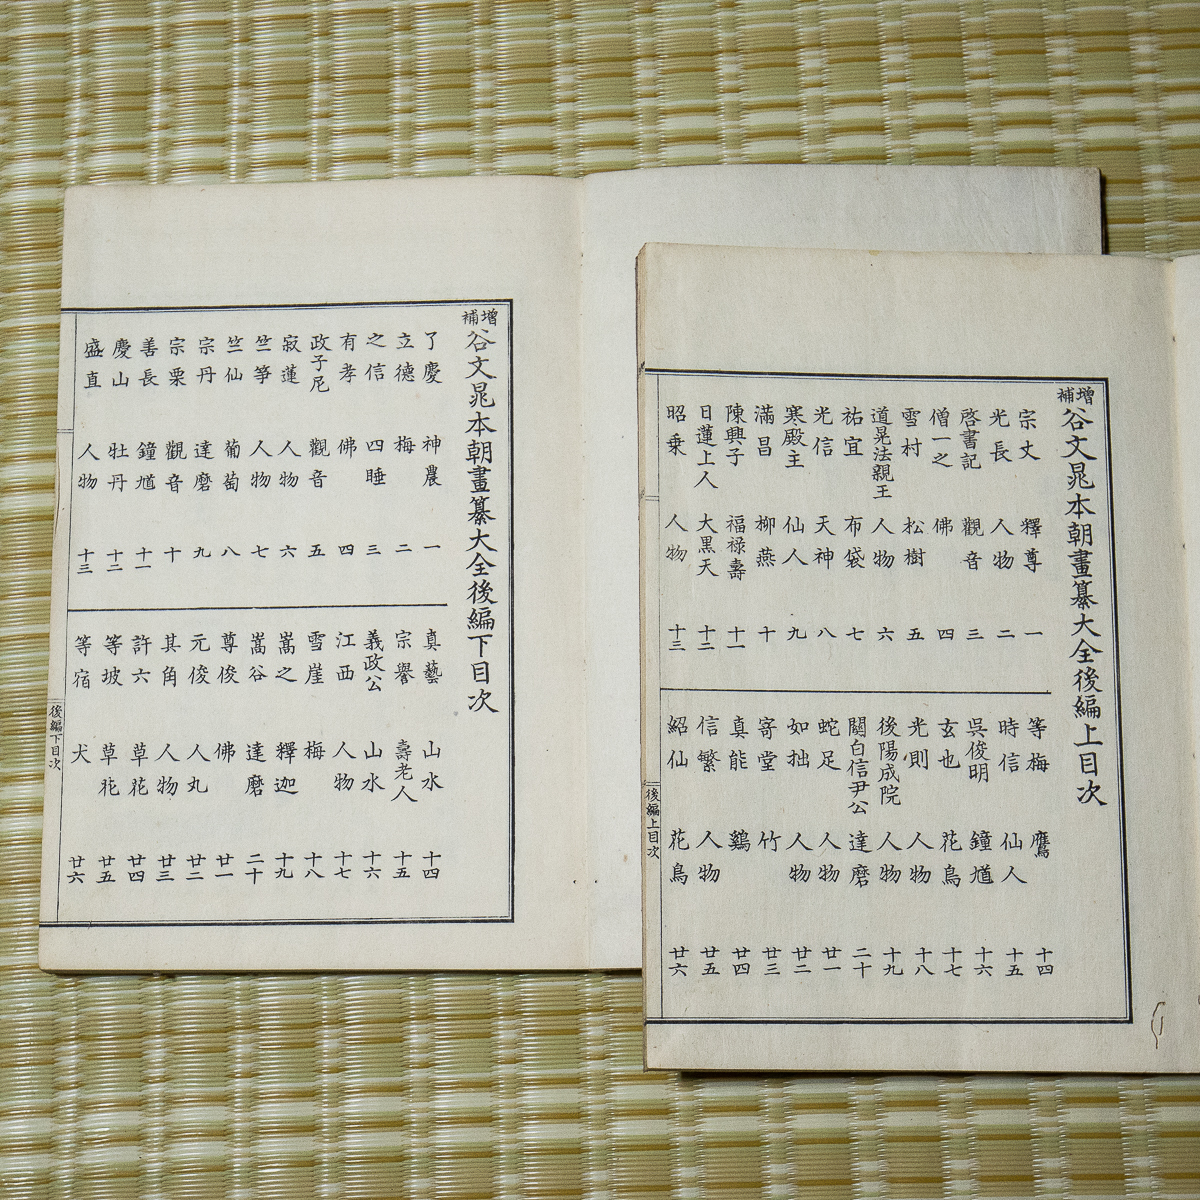 増補谷文晁本朝畫纂大全後編上目次
宗丈 釋尊 一
光長 人物 二
啓書記 觀音 三
僧一之 佛 四
雪村 松樹 五
道晃法親王 人物 六
祐宜 布袋 七
光信 天神 八
寒殿主 仙人 九
滿昌 柳燕 十
陳興子 福祿壽 十一
日蓮上人 大黒天 十二
昭乗 人物 十三
等梅 鷹 十四
時信 仙人 十五
呉俊明 鐘馗 十六
玄也 花鳥 十七
光則 人物 十八
後陽成院 人物 十九
關白信尹公 達磨 二十
蛇足 人物 廿一
如拙 人物 廿二
寄堂 竹 廿三
真能 鷄 廿四
信繁 人物 廿五
紹仙 花鳥 廿六
後編上目次
増補谷文晁本朝畫纂大全後編下目次
了慶 神農 一
立德 梅 二
之信 四睡 三
有孝 佛 四
政子尼 觀音 五
寂蓮 人物 六
竺箏 人物 七
竺仙 葡萄 八
宗丹 達磨 九
宗栗 觀音 十
善長 鐘馗 十一
慶山 牡丹 十二
盛直 人物 十三
真藝 山水 十四
宗譽 壽老人 十五
義政公 山水 十六
江西 人物 十七
雪崖 梅 十八
嵩之 釋迦 十九
嵩谷 達磨 二十
尊俊 佛 廿一
元俊 人丸 廿二
其角 人物 廿三
許六 草花 廿四
等坡 草花 廿五
等宿 犬 廿六
後編下目次